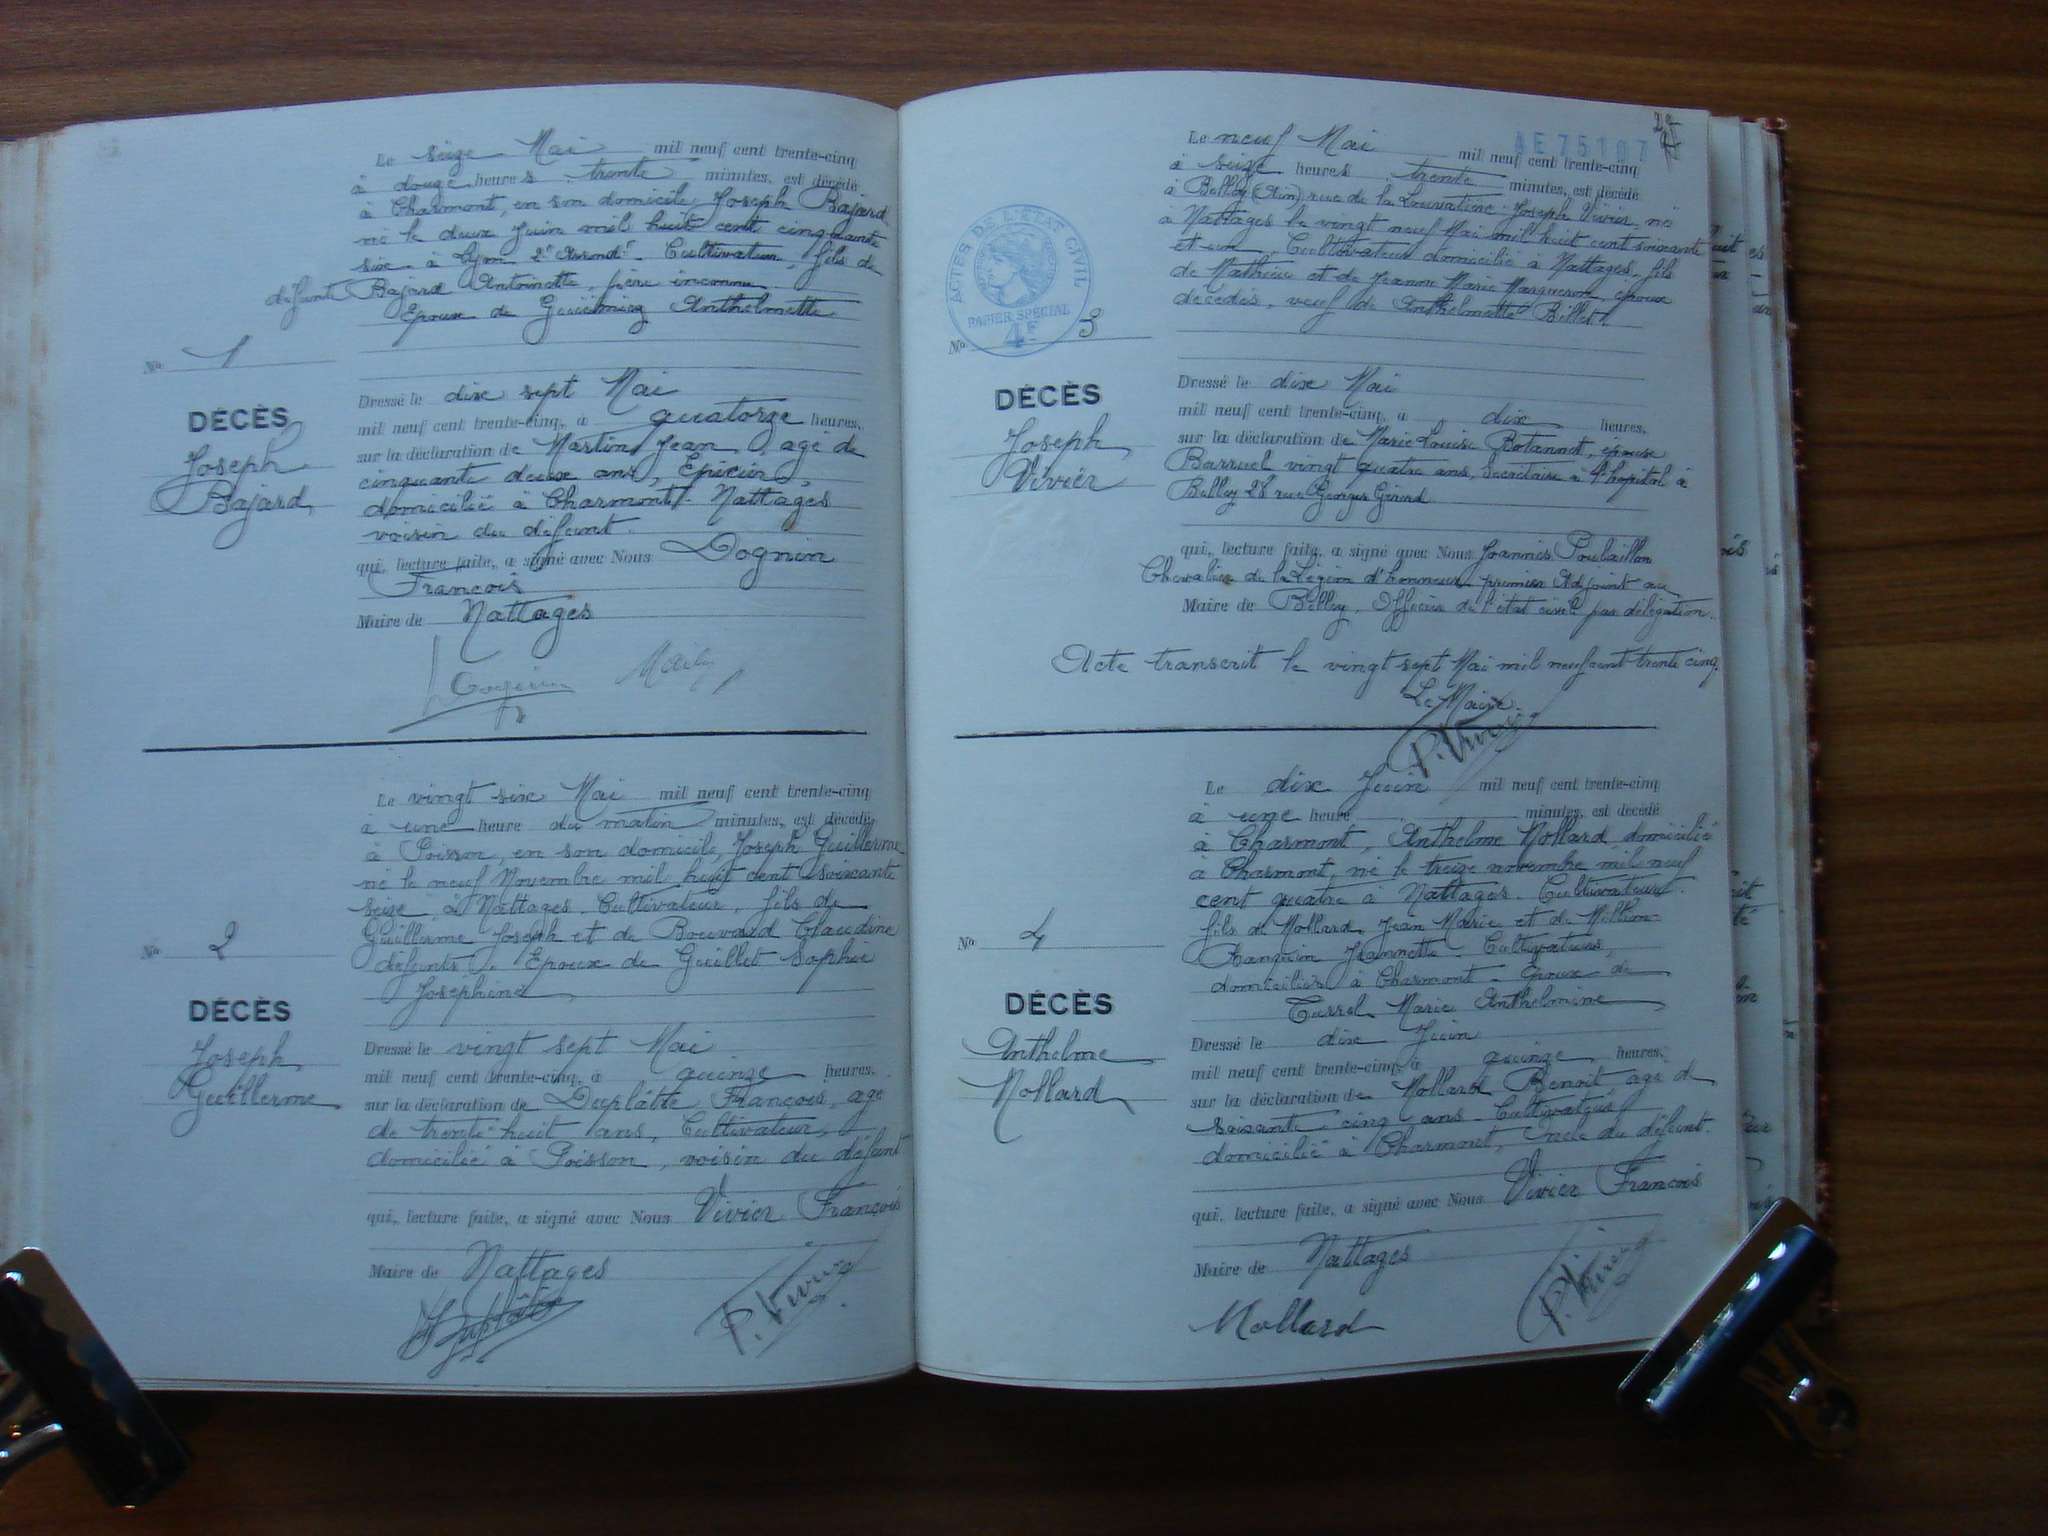 Le seize Mai mil neuf cent trente-cinq
à douze heures trente minutes, est décédé
à Charmont, en son domicile, Joseph Bajard
né le deux Juin mil huit cent cinquante
six à Lyon 2e Arrondt. Cultivateur, fils de
défunte Bajard Antoinette, père inconnu.
Epoux de Anthelmette
No 1
DÉCÈS
Joseph
Bajard
Dressé le dix sept Mai
mil neuf cent trente-cinq, à quatorze heures,
sur la déclaration de Martin Jean, agé de
cinquante deux ans, Epicier,
domicilié à Charmont Nattages
voisin du défunt.
qui, lecture faite, a signé avec Nous Dognin
François
Maire de Nattages
Le vingt six Mai mil neuf cent trente-cinq
à une heure du matin minutes, est décédé
à Poisson, en son domicile, Joseph Guillerme
né le neuf Novembre mil huit cent soixante
seize à Nattages. Cultivateur, fils de
Guillerme Joseph et de Bouvard Claudine
défunts. Epoux de Guillet Sophie
Josephine
No 2
DÉCÈS
Joseph
Guillerme
Dressé le vingt sept Mai
mil neuf cent trente-cinq, à quinze heures,
sur la déclaration de Duplâtre François, age
de trente huit ans, Cultivateur,
domicilié à Poisson, voisin du défunt
qui, lecture faite, a signé avec Nous Vivier François
Maire de Nattages
P. Vivier
AE 75107
Le neuf Mai mil neuf cent trente-cinq
à seize heures trente minutes, est décédé
à Belley (Ain) rue de la Louvatière Joseph Vivier, né
à Nattages le vingt neuf Mai mil huit cent soixante
et un, Cultivateur domicilié à Nattages, fils
de Mathieu et de Jeanne Marie Margueron, époux
décédés, veuf de Anthelmette Billet
ACTES DE L'ETAT CIVIL
PAPIER SPECIAL
4F
No 3
DÉCÈS
Joseph
Vivier
Dressé le dix Mai
mil neuf cent trente-cinq, à dix heures,
sur la déclaration de Marie Louise Botannet, épouse
Barruel vingt quatre ans, Secrétaire à l'hopital à
Belley 28 rue Georges Girerd
qui, lecture faite, a signé avec Nous Joannès Poulaillon
Chevalier de la Légion d'honneur premier Adjoint au
Maire de Belley, Officier de l'état civil par délégation.
Acte transcrit le vingt sept Mai mil neuf cent trente cinq.
Le Maire
P. Vivier
Le dix Juin mil neuf cent trente-cinq
à une heure minutes, est décédé
à Charmont, Anthelme Mollard, domicilié
à Charmont, né le treize novembre mil neuf
cent quatre à Nattages. Cultivateur.
fils de Mollard Jean Marie et de
Jeannette. Cultivateurs,
domiciliés à Charmont. Epoux de
Marie Anthelmine
No 4
DÉCÈS
Anthelme
Mollard
Dressé le dix Juin
mil neuf cent trente-cinq, à quinze heures,
sur la déclaration de Mollard Benoit, age de
soixante cinq ans. Cultivateur
domicilié à Charmont, oncle du défunt.
qui, lecture faite, a signé avec Nous Vivier François
Maire de Nattages
Mollard
P. Vivier